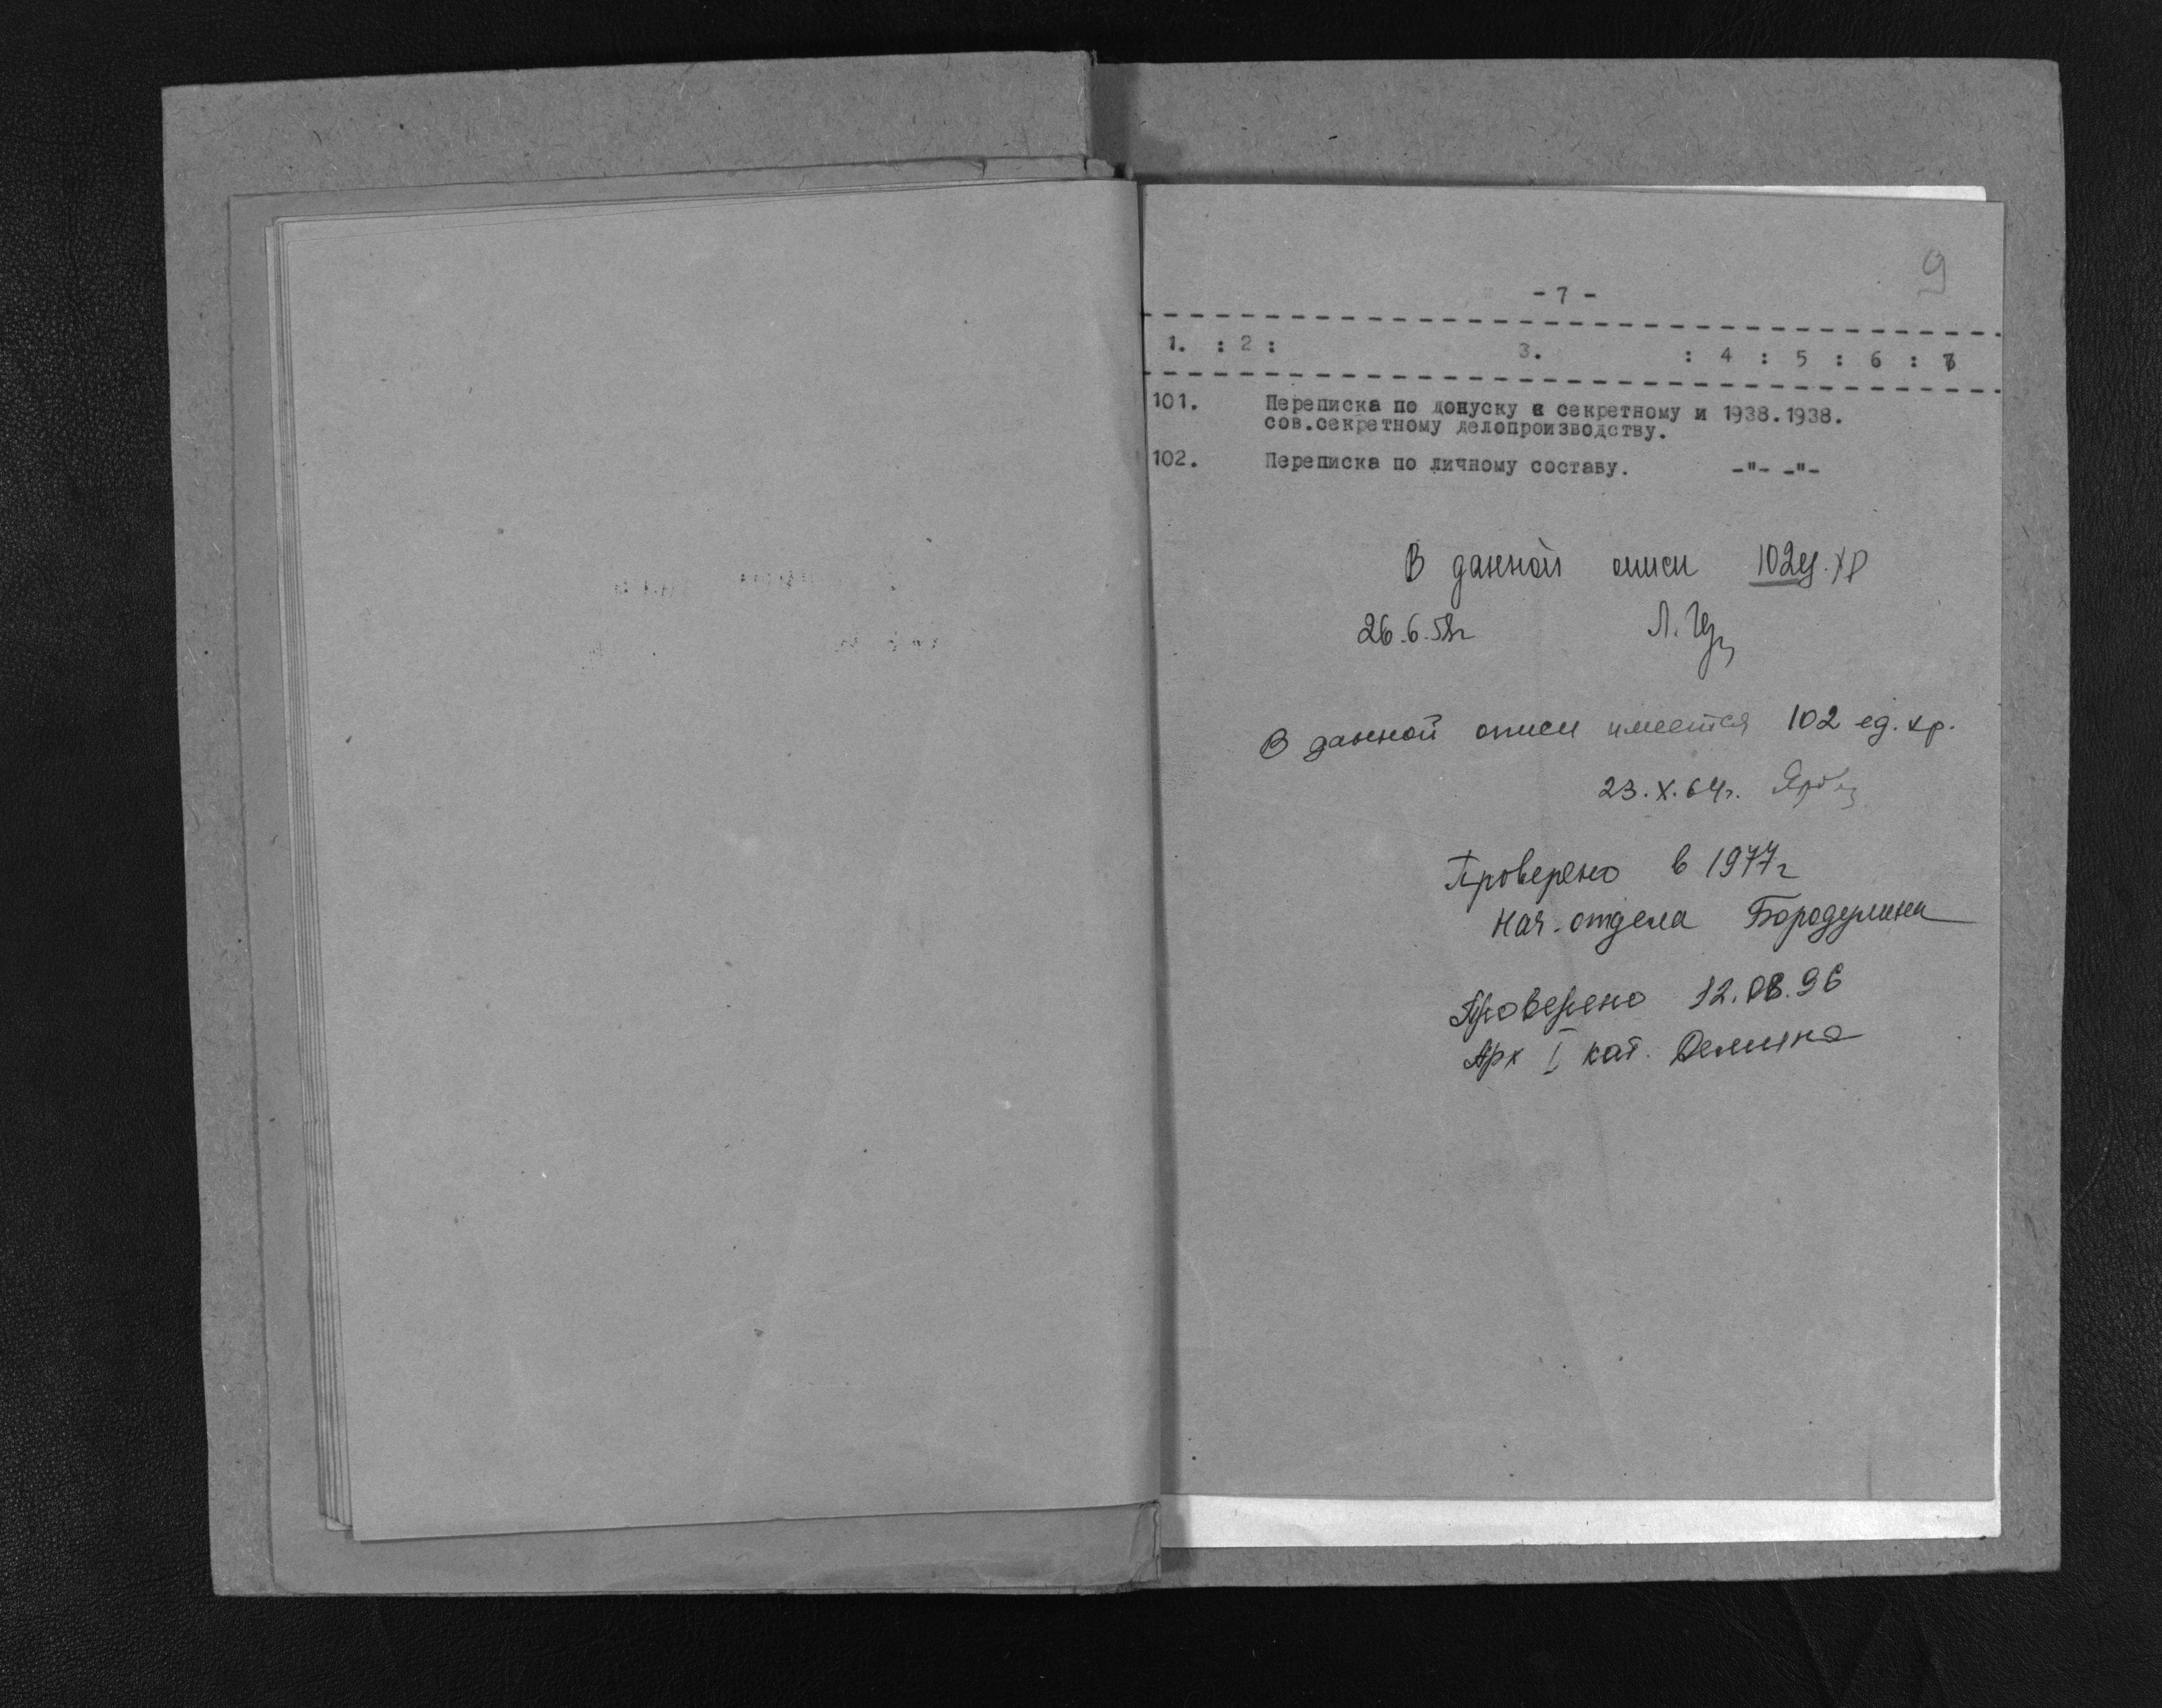 9
- 7 -
1. : 2 : 3. : 4 : 5 : 6 : 7
101. Переписка по допуску к секретному и 1938.1938.
сов.секретному делопроизводству.
102. Переписка по личному составу. -"- -"-
В данной описи 102 ед. хр
26.6.58г Л.
В данной описи имеется 102 ед. хр.
23.X.64г.
Проверено в 1977г
Нач. отдела Бородулина
Проверено 12.08.96
Арх I кат. Демина